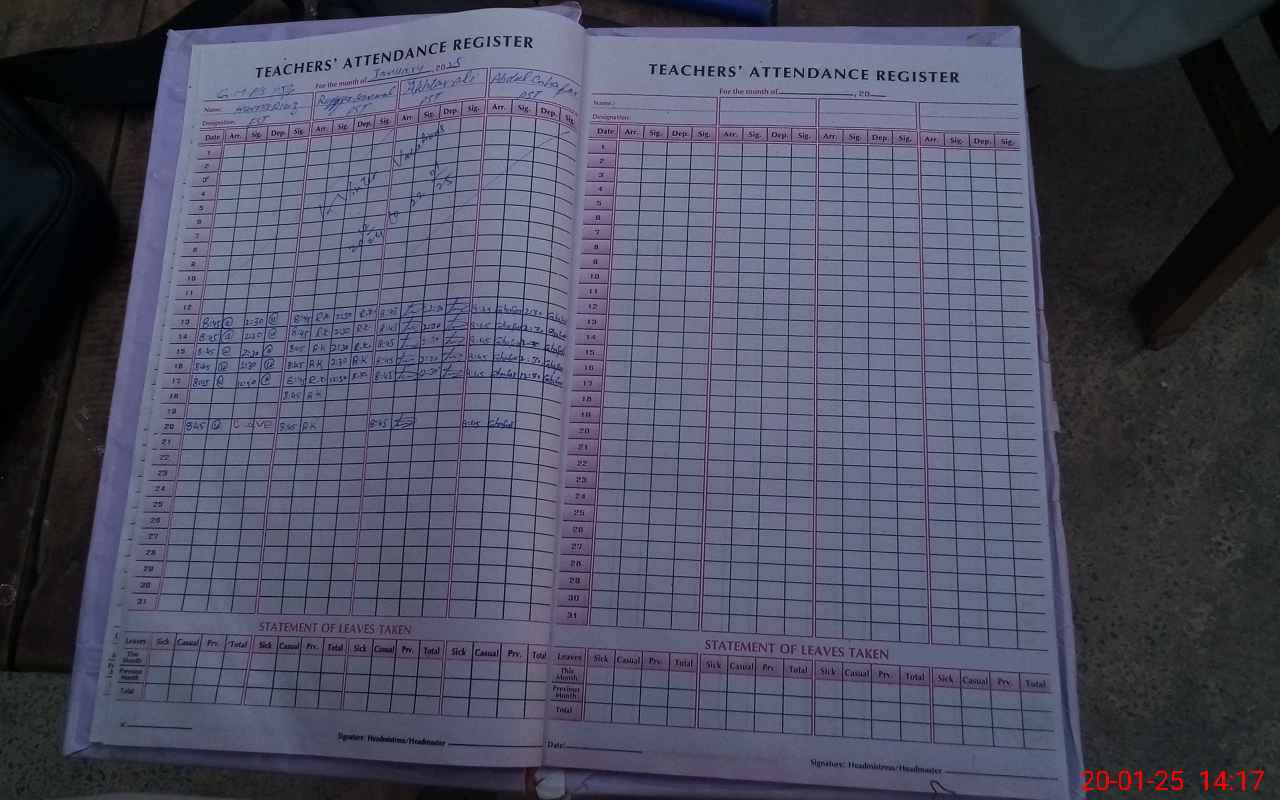 TEACHERS' ATTENDANCE REGISTER
For the month of January 2025
Name:
Designation: PST PST PST PST
Date Arr. Sig. Dep. Sig. Arr. Sig. Dep. Sig. Arr. Sig. Dep. Sig. Arr. Sig. Dep. Sig.
1
2
3
4
5
6
7
8
9
10
11
12
13 8:45 2:30 8:45 RK 2:30 RK 8:45 2:30 8:45 2:30
14 8:45 2:30 8:45 RK 2:30 RK 8:45 2:30 8:45 2:30
15 8:45 2:30 8:45 RK 2:30 RK 8:45 2:30 8:45 2:30
16 8:45 2:30 8:45 RK 2:30 RK 8:45 2:30 8:45 2:30
17 8:45 12:30 8:45 RK 12:30 RK 8:45 12:30 8:45 12:30
18 8:45 RK
19
20 8:45 Leave 8:45 RK 8:45 8:45
21
22
23
24
25
26
27
28
29
30
31
Winter Vacations
STATEMENT OF LEAVES TAKEN
Leaves Sick Casual Prv. Total Sick Casual Prv. Total Sick Casual Prv. Total Sick Casual Prv. Total
This Month
Previous Month
Total
Signature: Headmistress/Headmaster
TEACHERS' ATTENDANCE REGISTER
For the month of , 20
Name:
Designation:
Date Arr. Sig. Dep. Sig. Arr. Sig. Dep. Sig. Arr. Sig. Dep. Sig. Arr. Sig. Dep. Sig.
1
2
3
4
5
6
7
8
9
10
11
12
13
14
15
16
17
18
19
20
21
22
23
24
25
26
27
28
29
30
31
STATEMENT OF LEAVES TAKEN
Leaves Sick Casual Prv. Total Sick Casual Prv. Total Sick Casual Prv. Total Sick Casual Prv. Total
This Month
Previous Month
Total
Date:
Signature: Headmistress/Headmaster
20-01-25 14:17